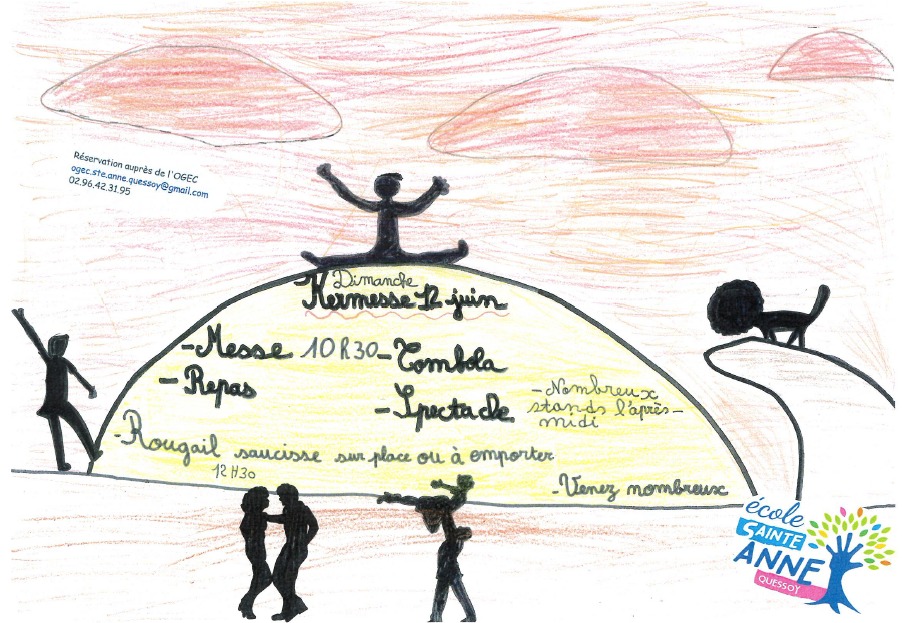 Réservation auprès de l'OGEC
ogec.ste.anne.quessoy@gmail.com
02.96.42.31.95
Dimanche
Kermesse 12 juin
-Messe 10h30
-Repas
-Tombola
-Spectacle
-Nombreux
stands l'après-
midi
-Rougail saucisse sur place ou à emporter
12H30
-Venez nombreux
école
SAINTE
ANNE
QUESSOY